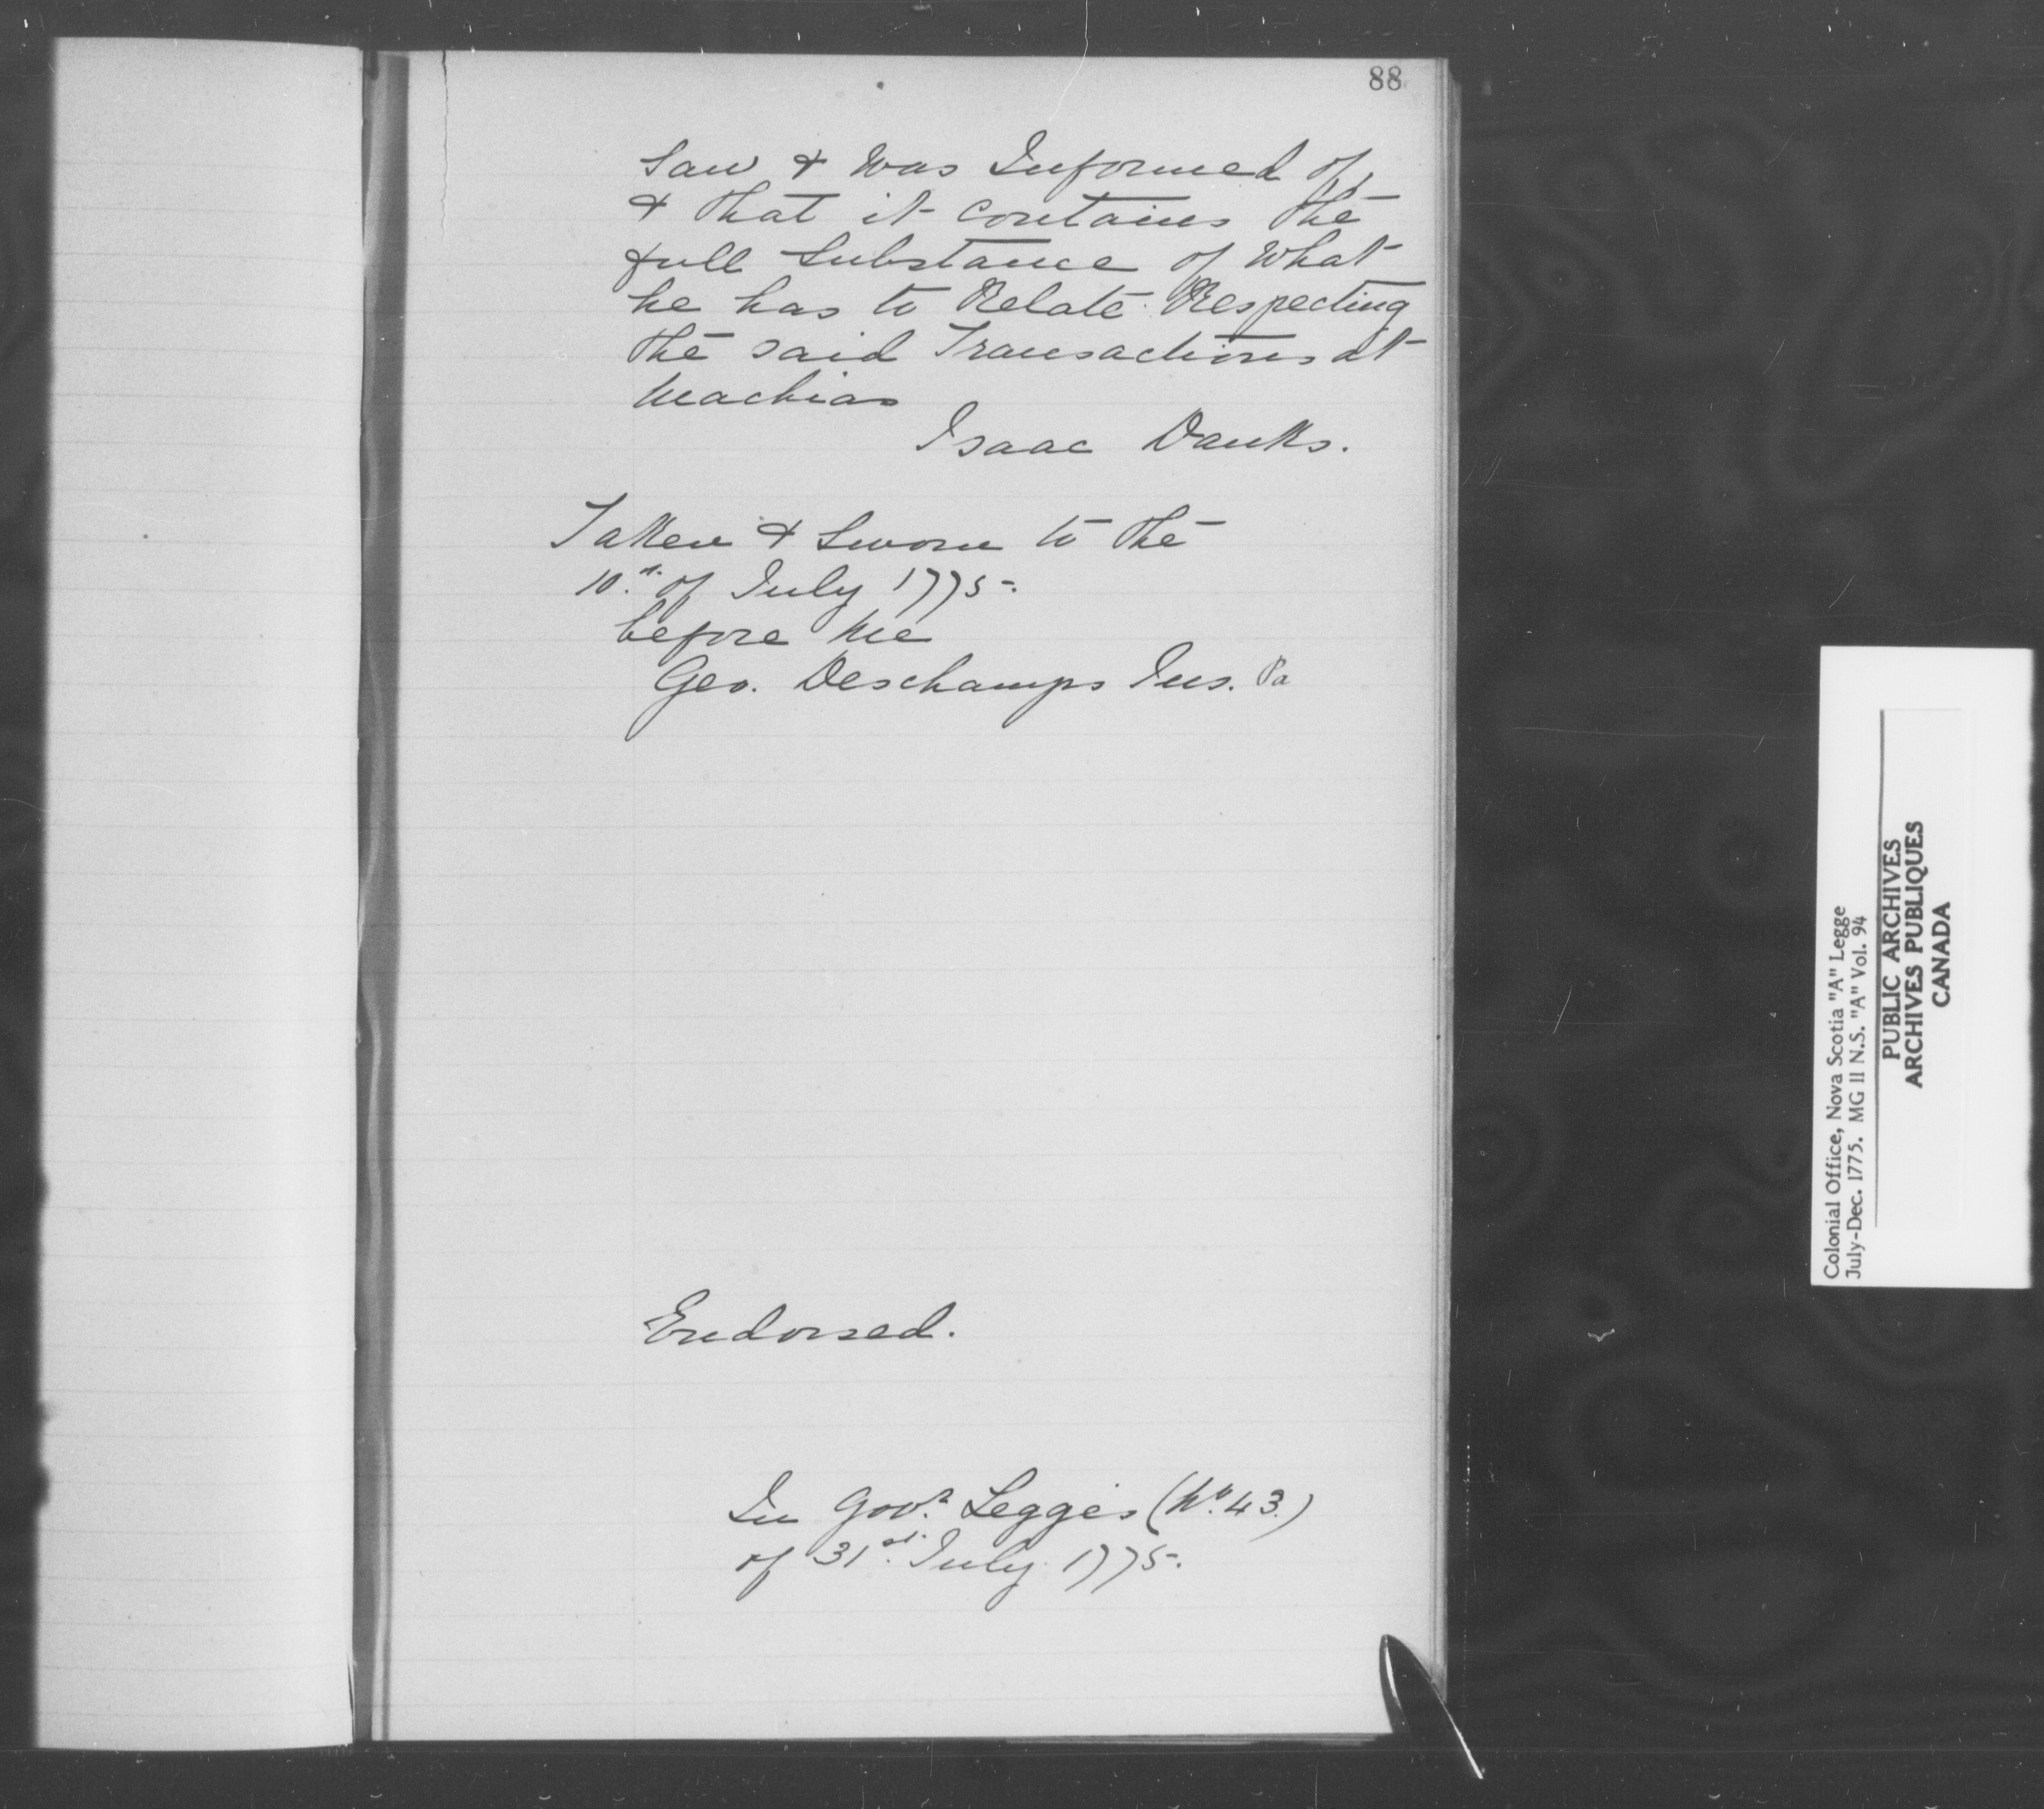 88
Saw & Was Informed of,
& that it contains the
full Substance of What
he has to Relate Respecting
the said Transactions at
Machias
Isaac Danks.
Taken & Sworn to the
10th of July 1775.
before Me
Geo. Deschamps Jus. Pa
Endorsed.
In Govr. Legge's (No. 43.)
of 31st. July 1775.
Colonial Office, Nova Scotia "A" Legge
July-Dec. 1775. MG 11 N.S. "A" Vol. 94
PUBLIC ARCHIVES
ARCHIVES PUBLIQUES
CANADA